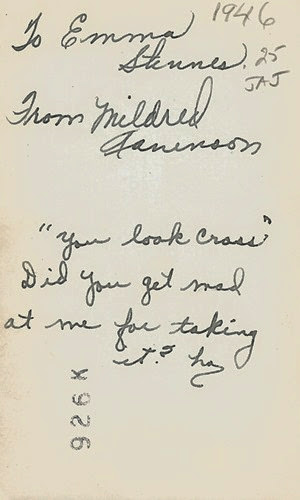 1946
To Emma
Stennes.
25
JAJ
From Mildred
"You look cross"
Did you get mad
at me for taking
it? ha
926K